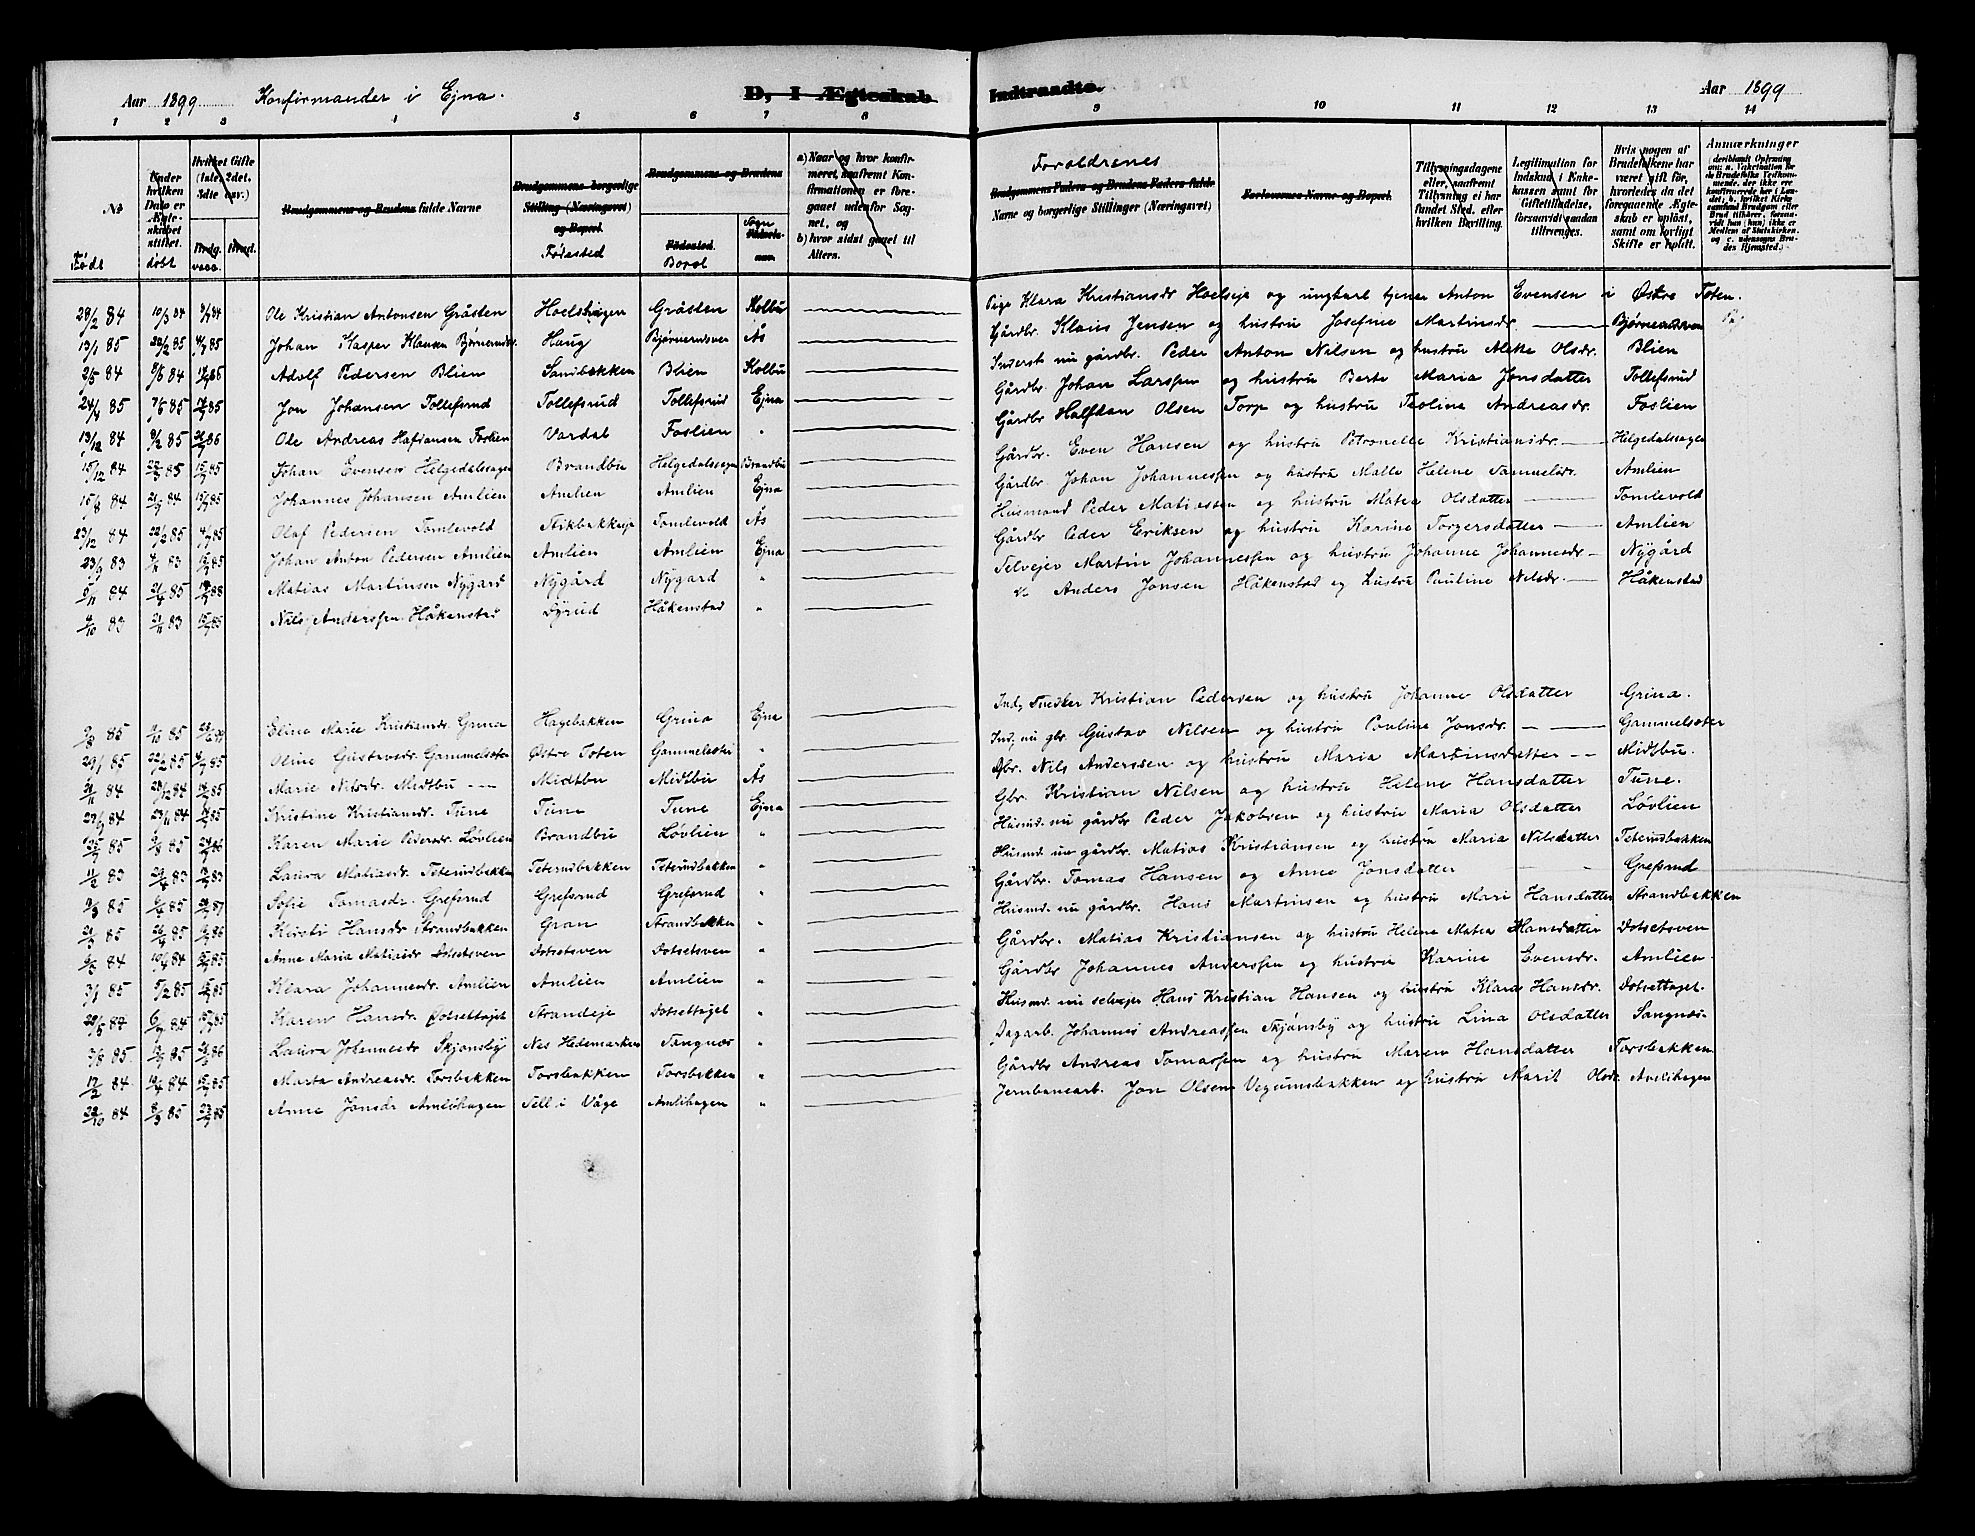 Aar 1899 Konfirmander i Ejna. D, I Ægteskab Indtraadte. Aar 1899
1 2 3 4 5 6 7 8 9 10 11 12 13 14
№ Født
Under hvilken Dato er Ægteskabet stiftet. døbt
Hvilket Gifte (1ste, 2det, 3die osv.) Brudg. Brud. vacc.
Brudgommens og Brudens fulde Navne
Brudgommens borgerlige Stilling (Næringsvei) og Bopæl Fødested
Brudgommens og Brudens Fødested. Bopæl Sogn
a) Naar og hvor konfirmeret, saafremt Konfirmationen er foregaaet udenfor Sognet, og b) hvor sidst gaaet til Alters.
Forældrenes Brudgommens Faders og Brudens Faders fulde Navne og borgerlige Stillinger (Næringsvei)
Forlovernes Navne og Bopæl.
Tillysningsdagene eller, saafremt Tillysning ei har fundet Sted, efter hvilken Bevilling.
Legitimation for Indskud i Enkekassen samt for Giftetilladelse, forsaavidt saadan tiltrænges.
Hvis nogen af Brudefolkene har været gift før, hvorledes da det foregaaende Ægteskab er opløst, samt om lovligt Skifte er holdt.
Anmærkninger
28/2 84 10/3 84 Ole Kristian Antonsen Gråsten Hoelshagen Gråsten Kolbu Pige Klara Kristiansdr Hoelseje og ungkarl tjener Anton Evensen i Østre Toten.
13/1 85 22/2 85 Johan Kasper Klausen Bjørnerudsv. Haug Bjørnerudsven Ås Gårdbr. Klaus Jensen og hustru Josefine Martinsdr. Bjørnerudsven
2/5 84 Adolf Pedersen Blien Sandbakken Blien Kolbu Inderst nu gårdbr. Peder Anton Nilsen og hustru Alette Olsdr. Blien
24/4 85 7/6 85 Jon Johansen Tollefsrud Tollefsrud Tollefsrud Ejna Gårdbr. Johan Larssen og hustru Berte Maria Jonsdatter Tollefsrud
13/12 84 9/2 85 Ole Andreas Halfdansen Foslien Vardal Foslien " Gårdbr Halfdan Olsen Torp og hustru Teoline Andreasdr. Foslien
15/12 84 22/3 85 Johan Evensen Helgedalssagen Brandbu Helgedalssagen Brandbu Gårdbr. Even Hansen og hustru Petronelle Kristiansdr. Helgedalssagen
15/8 84 21/9 84 Johannes Johansen Amlien Amlien Amlien Ejna Gårdbr Johan Johannessen og hustru Malle Helene Samuelsdr. Amlien
23/12 84 22/2 85 Olaf Pedersen Tomlevold Stikbakkeje Tomlevold Ås Husmand Peder Matiassen og hustru Matea Olsdatter Tomlevold
23/9 83 Johan Anton Pedersen Amlien Amlien Amlien Ejna Gårdbr Peder Eriksen og hustru Karine Torgersdatter Amlien
5/11 84 Matias Martinsen Nygard Nygård Nygard " Selvejer Martin Johannessen og hustru Johanne Johannesdr Nygård
4/10 83 21/11 83 Nils Anderssen Håkenstad Dyrud Håkenstad " Anders Jonsen Håkenstad og hustru Pauline Nilsdr. Håkenstad
9/8 85 Eline Marie Kristiansdr. Grina Hagebakken Grina Ejna Ind. Snedker Kristian Pedersen og hustru Johanne Olsdatter Grina.
29/1 85 22/2 85 Oline Gustavsdr. Gammelseter Østre Toten Gammelseter " Ind. nu gbr. Gustav Nilsen og hustru Pauline Jonsdr. Gammelseter
21/11 84 28/12 84 Marie Nilsdr. Midtbu Midtbu Midtbu Ås Gbr. Nils Anderssen og hustru Maria Martinsdatter Midtbu.
27/9 84 23/11 84 Kristine Kristiansdr. Tune Tune Tune Ejna Gbr. Kristian Nilsen og hustru Helene Hansdatter Tune.
Karen Marie Pedersdr. Løvlien Brandbu Løvlien " Husmd. nu gårdbr Peder Jakobsen og hustru Maria Olsdatter Løvlien
11/2 83 29/4 83 Laura Matiasdr. Teterudbakken Teterudbakken Teterudbakken " Husmd. nu gårdbr. Matias Kristiansen og hustru Maria Nilsdatter Teterudbakken
Sofie Tomasdr. Grefsrud Grefsrud Grefsrud " Gårdbr. Tomas Hansen og Anne Jonsdatter Grefsrud
21/3 85 26/4 85 Kirsti Hansdr Strandbakken Gran Strandbakken " Husmd. nu gårdbr. Hans Martinsen og hustru Mari Hansdatter Strandbakken
Anne Maria Matiasdr Dotsetsven Dotsetsven Dotsetsven " Gårdbr. Matias Kristiansen og hustru Helene Matea Hansdatter Dotsetsven
3/1 85 5/2 85 Klara Johannesdr. Amlien Amlien Amlien " Gårdbr Johannes Anderssen og hustru Karine Evensdr. Amlien.
28/5 84 6/7 84 Karen Hansdr. Dotsethaget Strandeje Dotsethaget " Husmd. nu selvejer Hans Kristian Hansen og hustru Klara Hansdr. Dotsethaget.
3/6 85. Laura Johannesdr Skjønsby Nes Hedemarken Sangnes " Dagarb. Johannes Andreassen Skjønsby og hustru Lina Olsdatter Sangnes
17/2 84 Marta Andreasdr. Torsbakken Torsbakken Torsbakken " Gårdbr Andreas Tomassen og hustru Maren Hansdatter Torsbakken
28/10 84 8/3 85 Anne Jonsdr Amlihagen Sell i Våge Amlihagen " Jernbanearb. Jon Olsen Vegumsbakken og hustru Marit Olsdr. Amlihagen